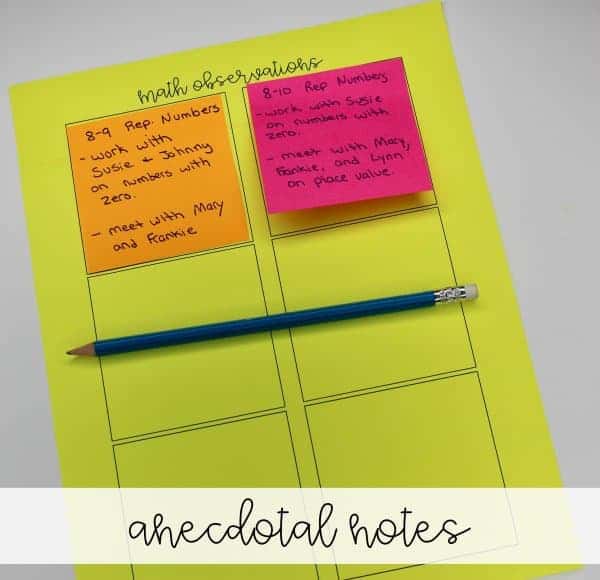 math observations
8-9 Rep. Numbers
- work with
Susie & Johnny
on numbers with
zero.
- meet with Mary
and Frankie
8-10 Rep Numbers
- work with Susie
on numbers with
zero.
- meet with Mary,
Frankie, and Lynn
on place value.
anecdotal notes